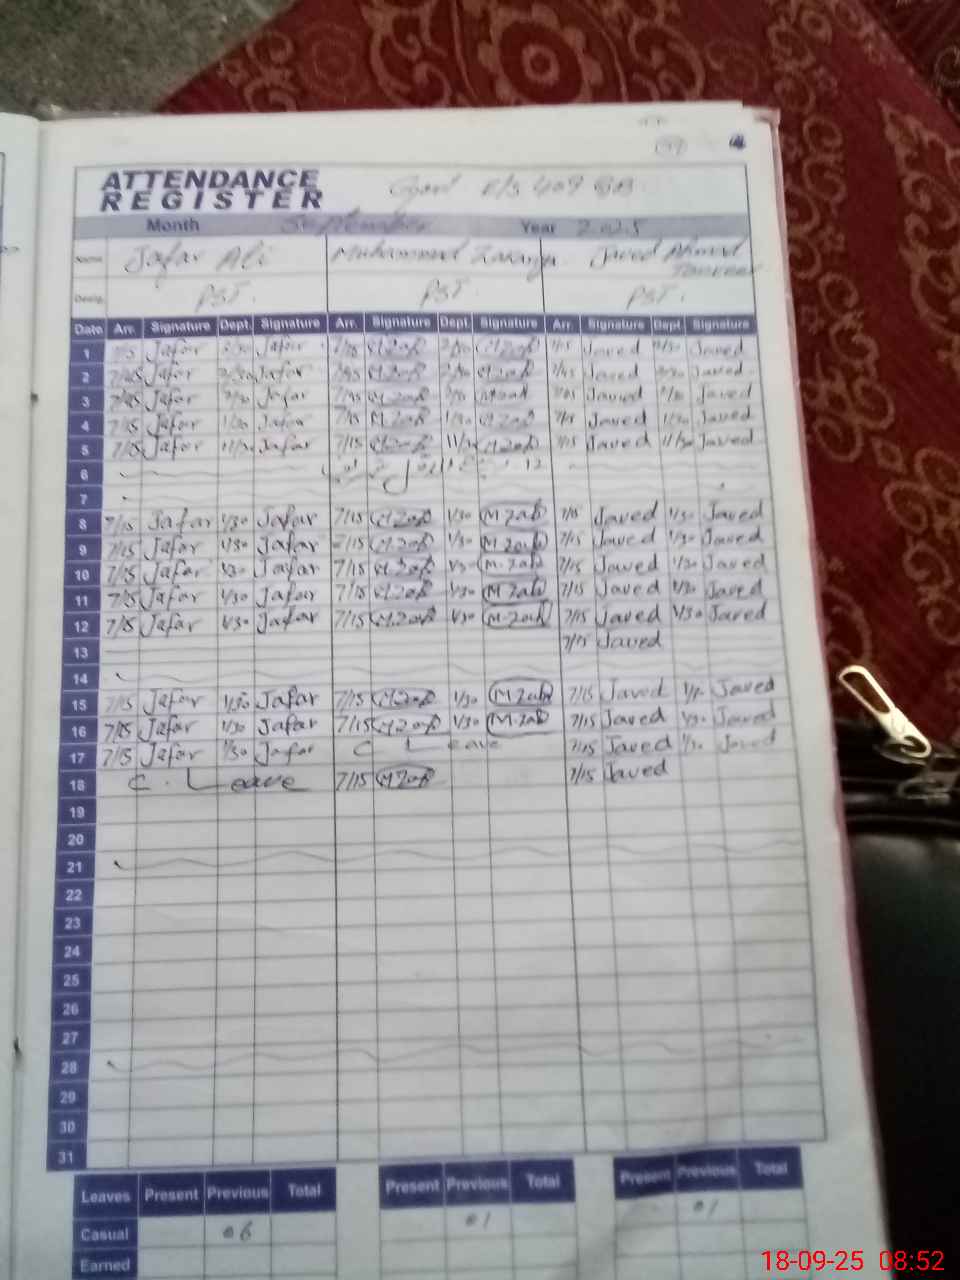 ATTENDANCE
REGISTER
Govt E/S 409 GB
Month September Year 2025
Name Jafar Ali Muhammad Zakariya Javed Ahmad
Desig. PST. PST. PST.
Date Arr. Signature Dept. Signature Arr. Signature Dept. Signature Arr. Signature Dept. Signature
1 Jafar Jafar Javed Javed
2 7/15 Jafar Jafar Javed Javed
3 Jafar Jafar Javed Javed
4 7/15 Jafar 1/30 Jafar 7/15 1/30 7/15 Javed 1/30 Javed
5 7/15 Jafar 11/30 Jafar 7/15 11/30 7/15 Javed 11/30 Javed
6
7
8 7/15 Jafar 1/30 Jafar 7/15 M Zak 1/30 M Zak 7/15 Javed 1/30 Javed
9 7/15 Jafar 1/30 Jafar 7/15 M Zak 1/30 M Zak 7/15 Javed 1/30 Javed
10 7/15 Jafar 1/30 Jafar 7/15 M Zak 1/30 M. Zak 7/15 Javed 1/30 Javed
11 7/15 Jafar 1/30 Jafar 7/15 M Zak 1/30 M Zak 7/15 Javed 1/30 Javed
12 7/15 Jafar 1/30 Jafar 7/15 M Zak 1/30 M-Zak 7/15 Javed 1/30 Javed
13 7/15 Javed
14
15 7/15 Jafar 1/30 Jafar 7/15 M Zak 1/30 M Zak 7/15 Javed Javed
16 7/15 Jafar 1/30 Jafar 7/15 M Zak 1/30 M Zak 7/15 Javed 1/30 Javed
17 7/15 Jafar 1/30 Jafar C Leave 7/15 Javed 1/30 Javed
18 C. Leave 7/15 M Zak 7/15 Javed
19
20
21
22
23
24
25
26
27
28
29
30
31
Leaves Present Previous Total Present Previous Total Present Previous Total
Casual 06 01 01
Earned
18-09-25 08:52